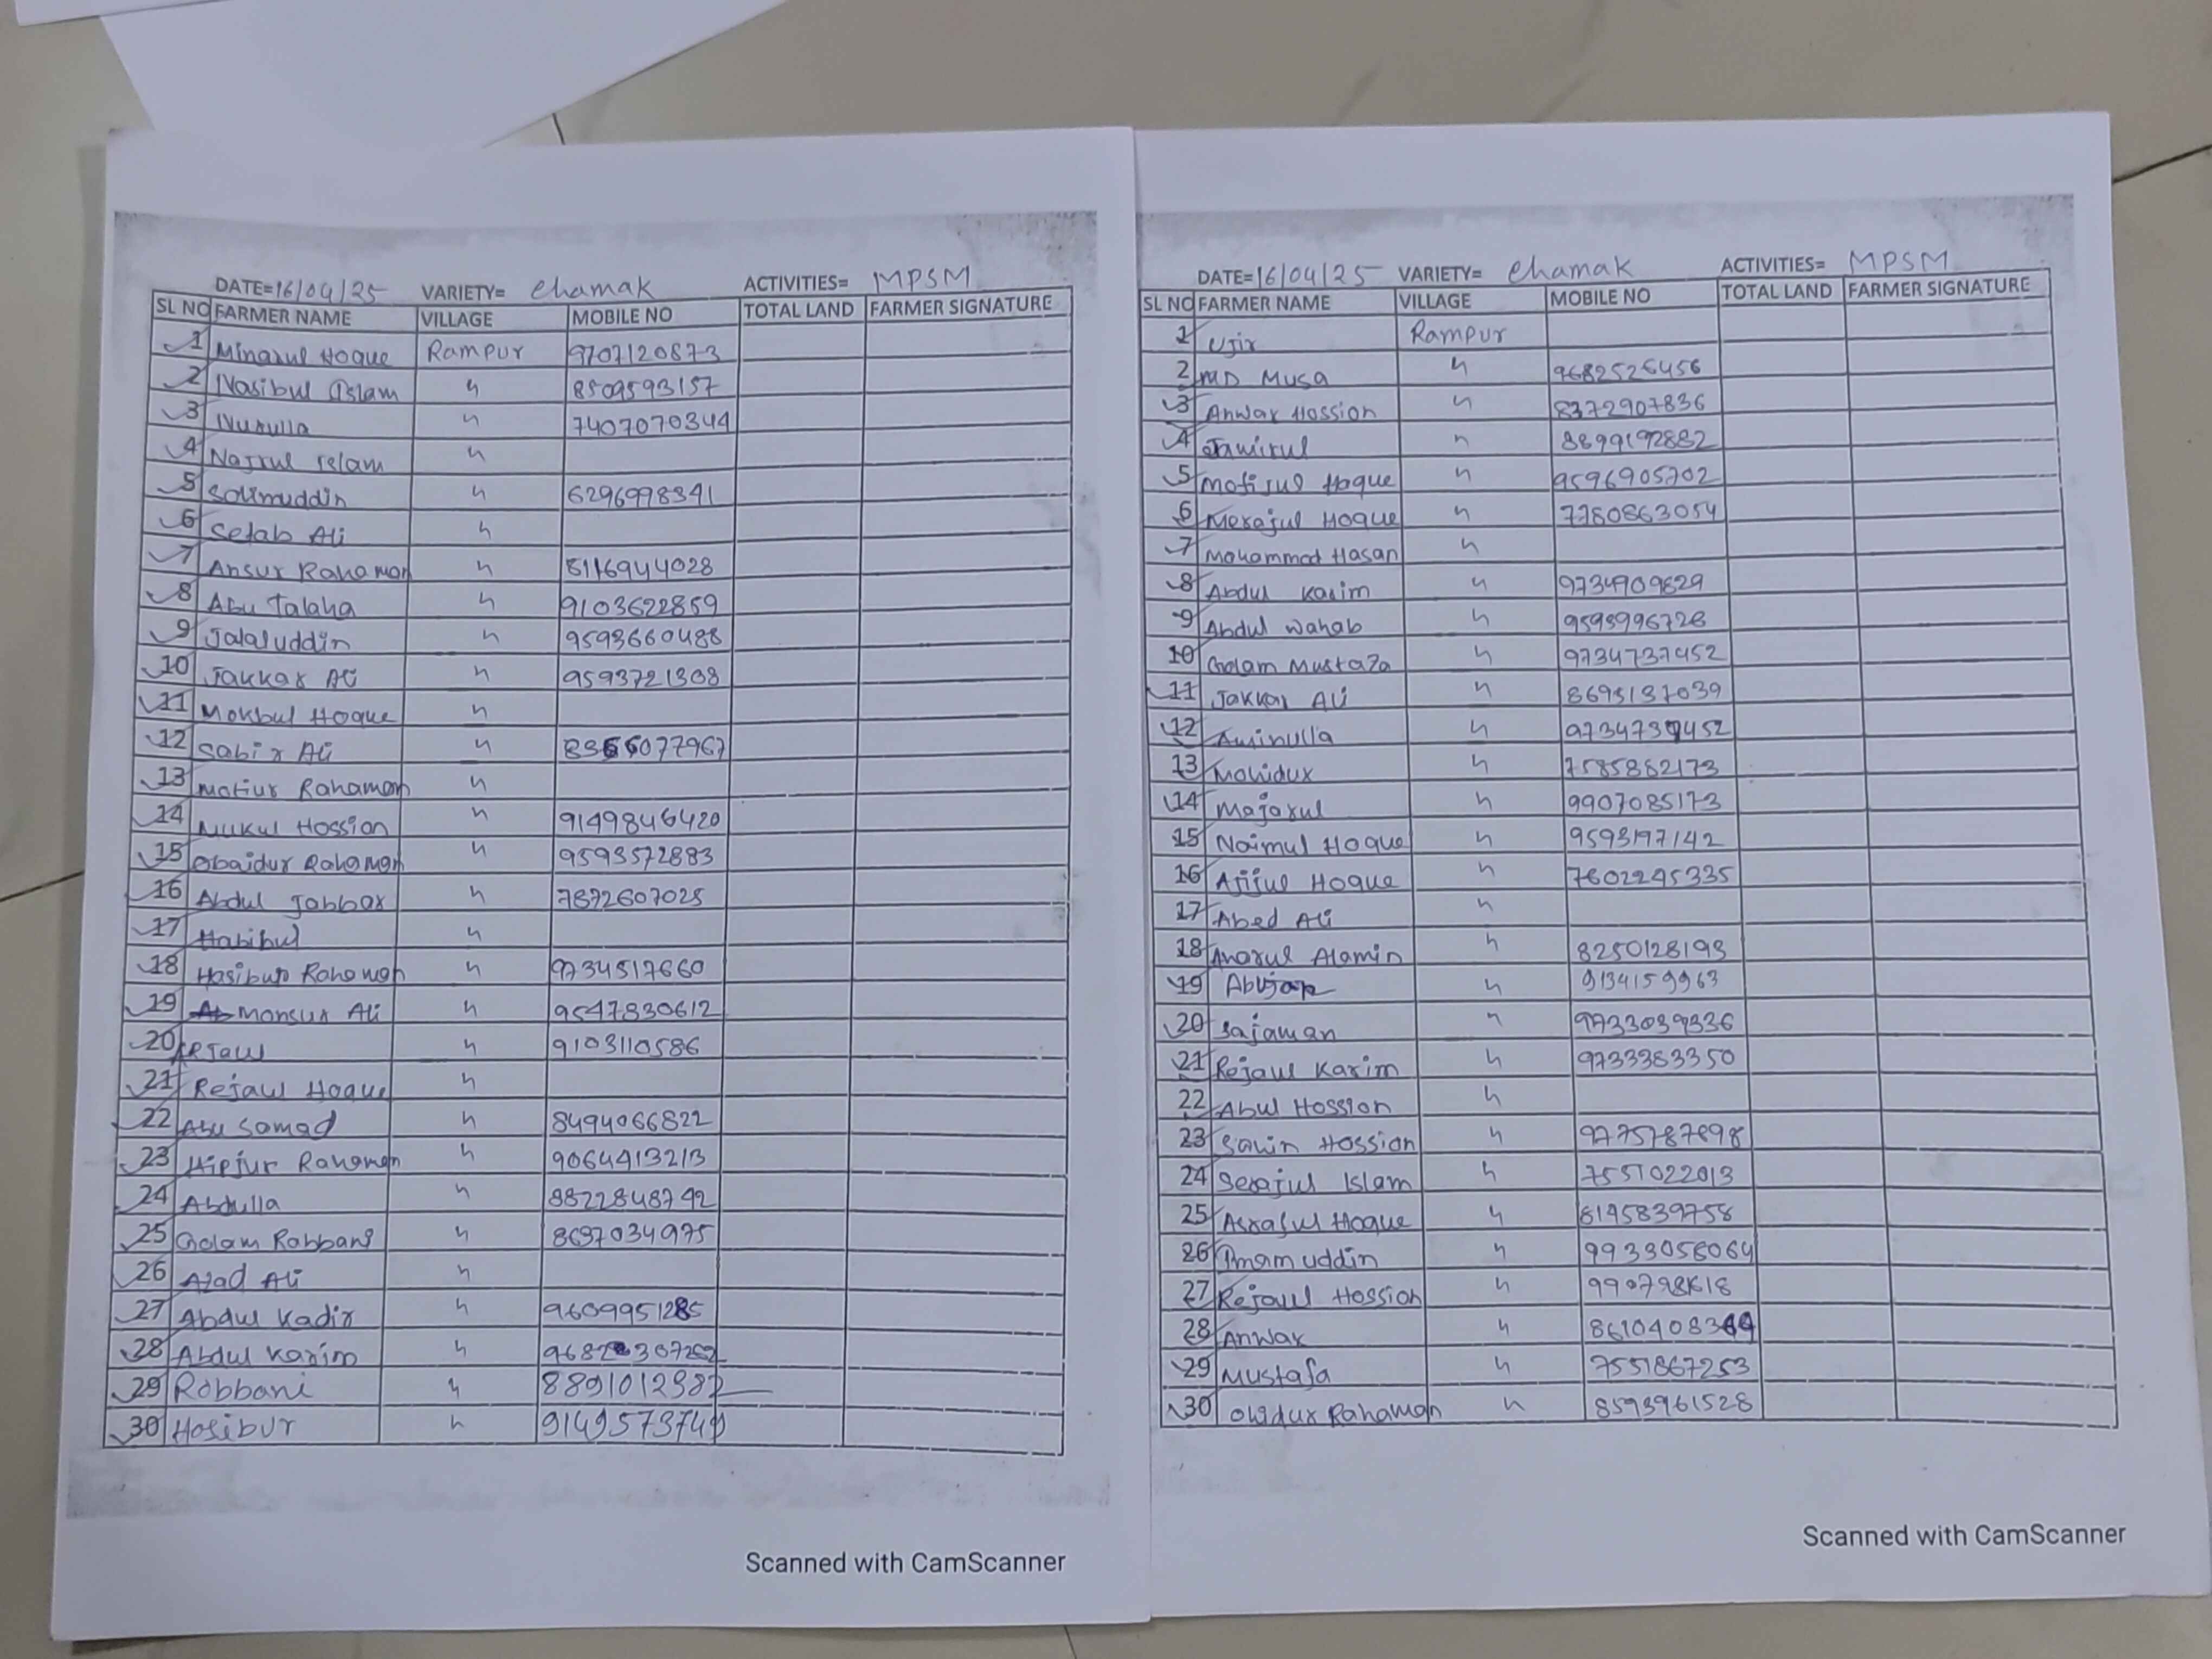 DATE=16/04/25 VARIETY= Chamak ACTIVITIES= MPSM
SL NO FARMER NAME VILLAGE MOBILE NO TOTAL LAND FARMER SIGNATURE
1 Minarul Hoque Rampur 9707120873
2 Nasibul Islam " 8509593157
3 Nurulla " 7407070344
4 Najrul Islam "
5 Solimuddin " 6296998341
6 Setab Ali "
7 Ansur Rahaman " 8116944028
8 Abu Talaha " 9103622859
9 Jalaluddin " 9593660488
10 Jakkar Ali " 9593721308
11 Mokbul Hoque "
12 Sabir Ali "
13 Motiur Rahaman "
14 Mukul Hossion " 9149846420
15 Obaidur Rahaman " 9593572883
16 Abdul Jabbar " 7872607025
17 Habibul "
18 Hasibur Rahaman " 9734517660
19 Mansur Ali " 9547830612
20 " 9103110586
21 Rejaul Hoque "
22 Abu Samad " 8494066822
23 Rahaman " 9064413213
24 Abdulla "
25 Golam Rabbani " 8637034975
26 Azad Ali "
27 Abdul Kadir " 9609951285
28 Abdul Karim "
29 Robbani "
30 Hosibur "
Scanned with CamScanner
DATE=16/04/25 VARIETY= Chamak ACTIVITIES= MPSM
SL NO FARMER NAME VILLAGE MOBILE NO TOTAL LAND FARMER SIGNATURE
1 Ujir Rampur
2 MD Musa " 9682526456
3 Anwar Hossion " 8372907836
4 Jamirul "
5 Mofijul Hoque " 9596905702
6 Merajul Hoque " 7780863054
7 Mohammod Hasan "
8 Abdul Karim " 9734909829
9 Abdul Wahab " 9593996728
10 Golam Mustaza " 9734737452
11 Jakkar Ali " 8693137039
12 Aminulla "
13 Mohidur " 7585862173
14 Majarul " 9907085173
15 Naimul Hoque " 9593197142
16 Ajijul Hoque " 7602295335
17 Abed Ali "
18 Anarul Alamin " 8250128193
19 Abujar " 9134159963
20 Sajaman " 9733039336
21 Rejaul Karim " 9733383350
22 Abul Hossion "
23 Hossion "
24 Serajul Islam " 7551022013
25 Asraful Hoque " 8195839758
26 Imamuddin " 9933056064
27 Rejaul Hossion "
28 Anwar "
29 Mustafa " 7551867253
30 Rahaman " 8593961528
Scanned with CamScanner